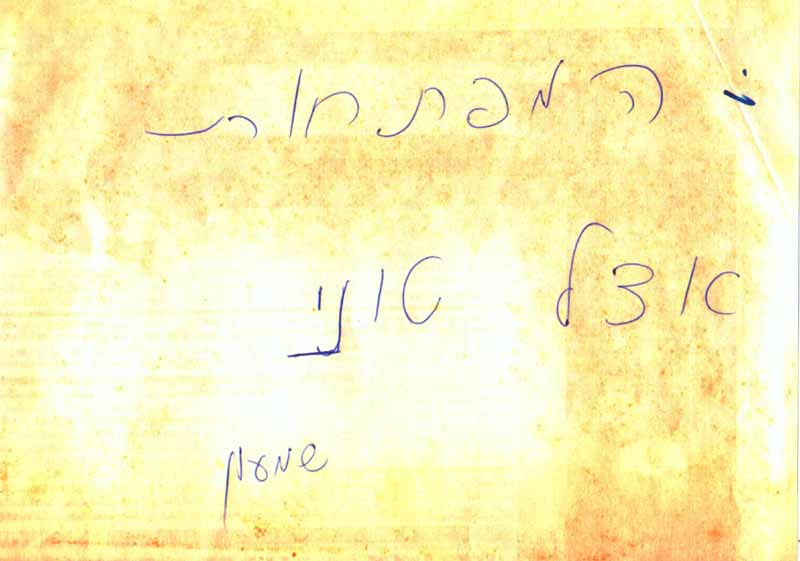 המפתחות
אצל טוני
שמעון